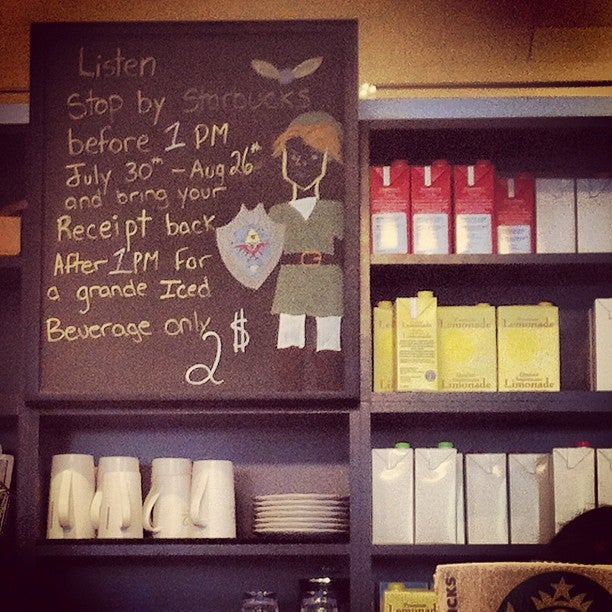 Listen
Stop by Starbucks
before 1 PM
July 30th - Aug 26th
and bring your
Receipt back
After 1PM For
a grande Iced
Beverage only
2 $
Lemonade
Lemonade
Lemonade
Lemonade
CKS